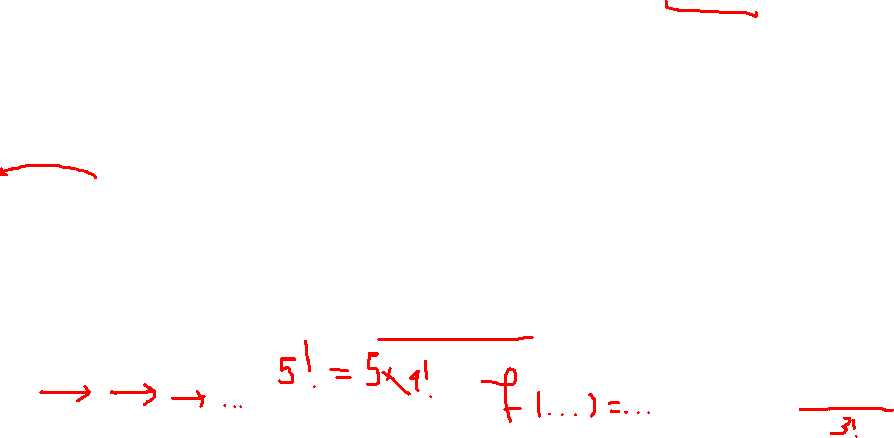 → → → ... 5! = 5×4! f(...) = ...
3!